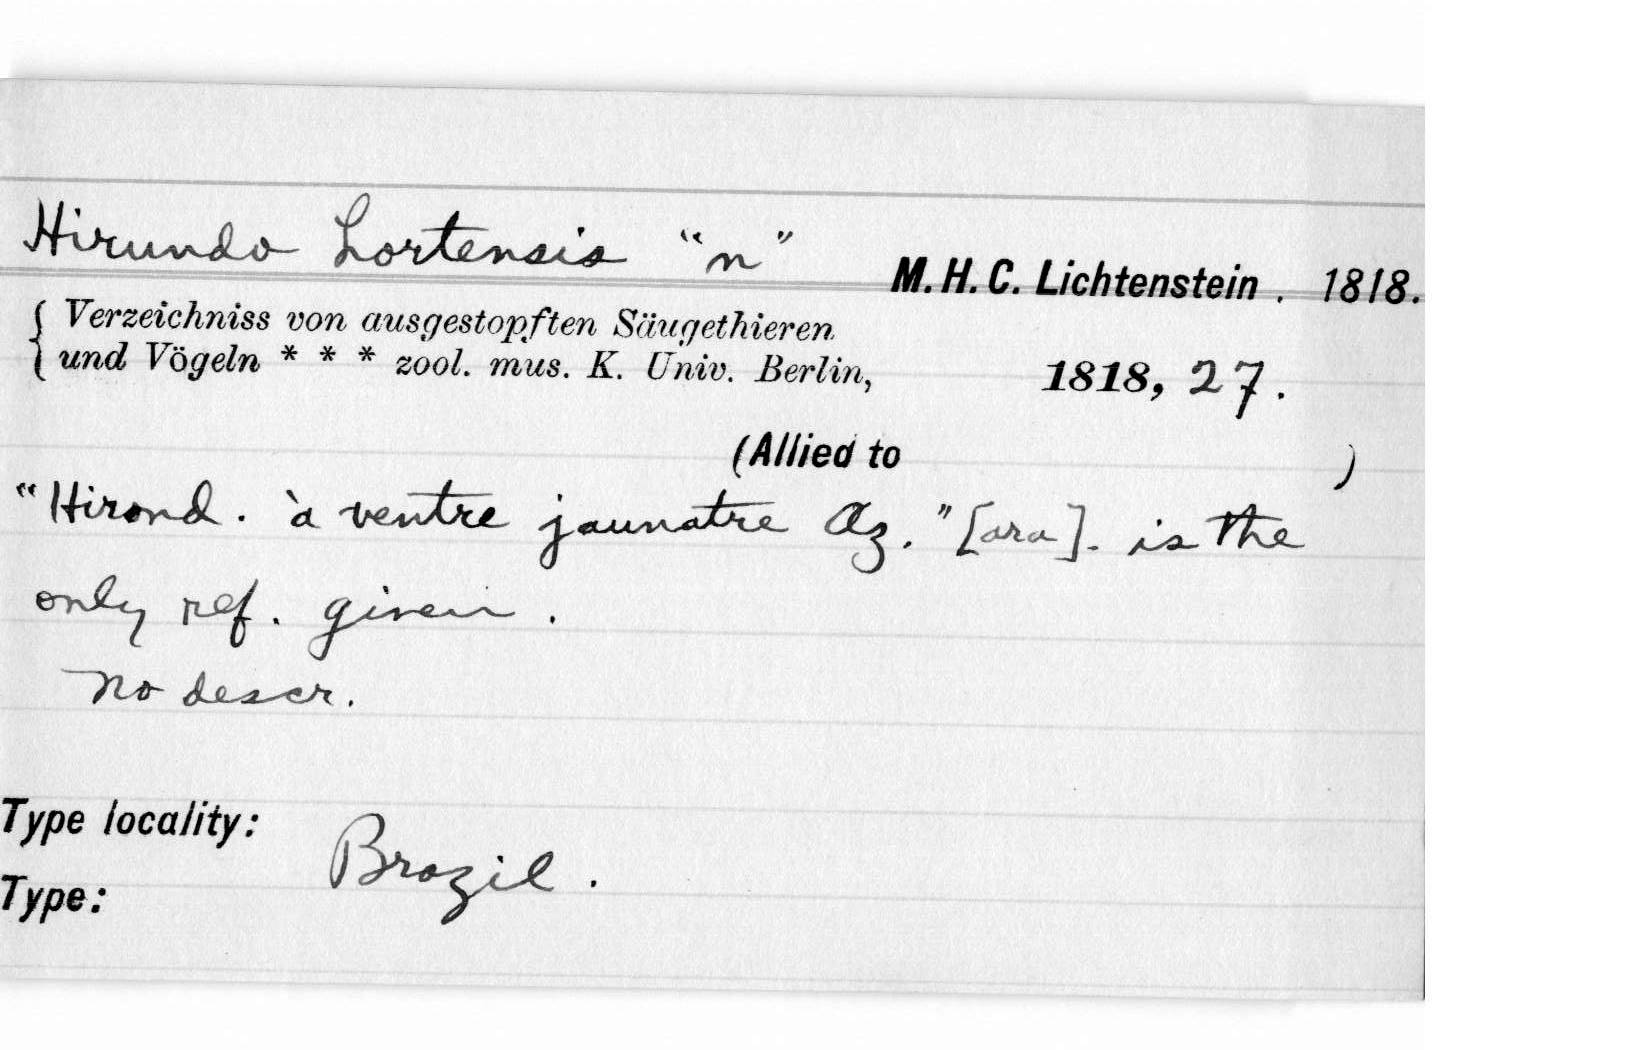 Hirundo hortensis "n"
M. H. C. Lichtenstein . 1818.
{ Verzeichniss von ausgestopften Säugethieren
und Vögeln * * * zool. mus. K. Univ. Berlin, 1818, 27.
(Allied to )
"Hirond. à ventre jaunatre Az." [ara]. is the
only ref. given .
No descr.
Type locality:
Brazil .
Type: